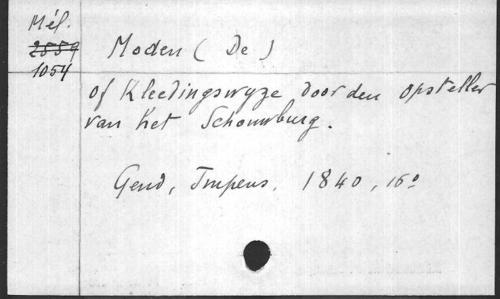 Mél.
2559
1054
Moden ( De )
of Kleedingswyze door den opsteller
van het Schouwburg.
Gend, Impens, 1840, 16º